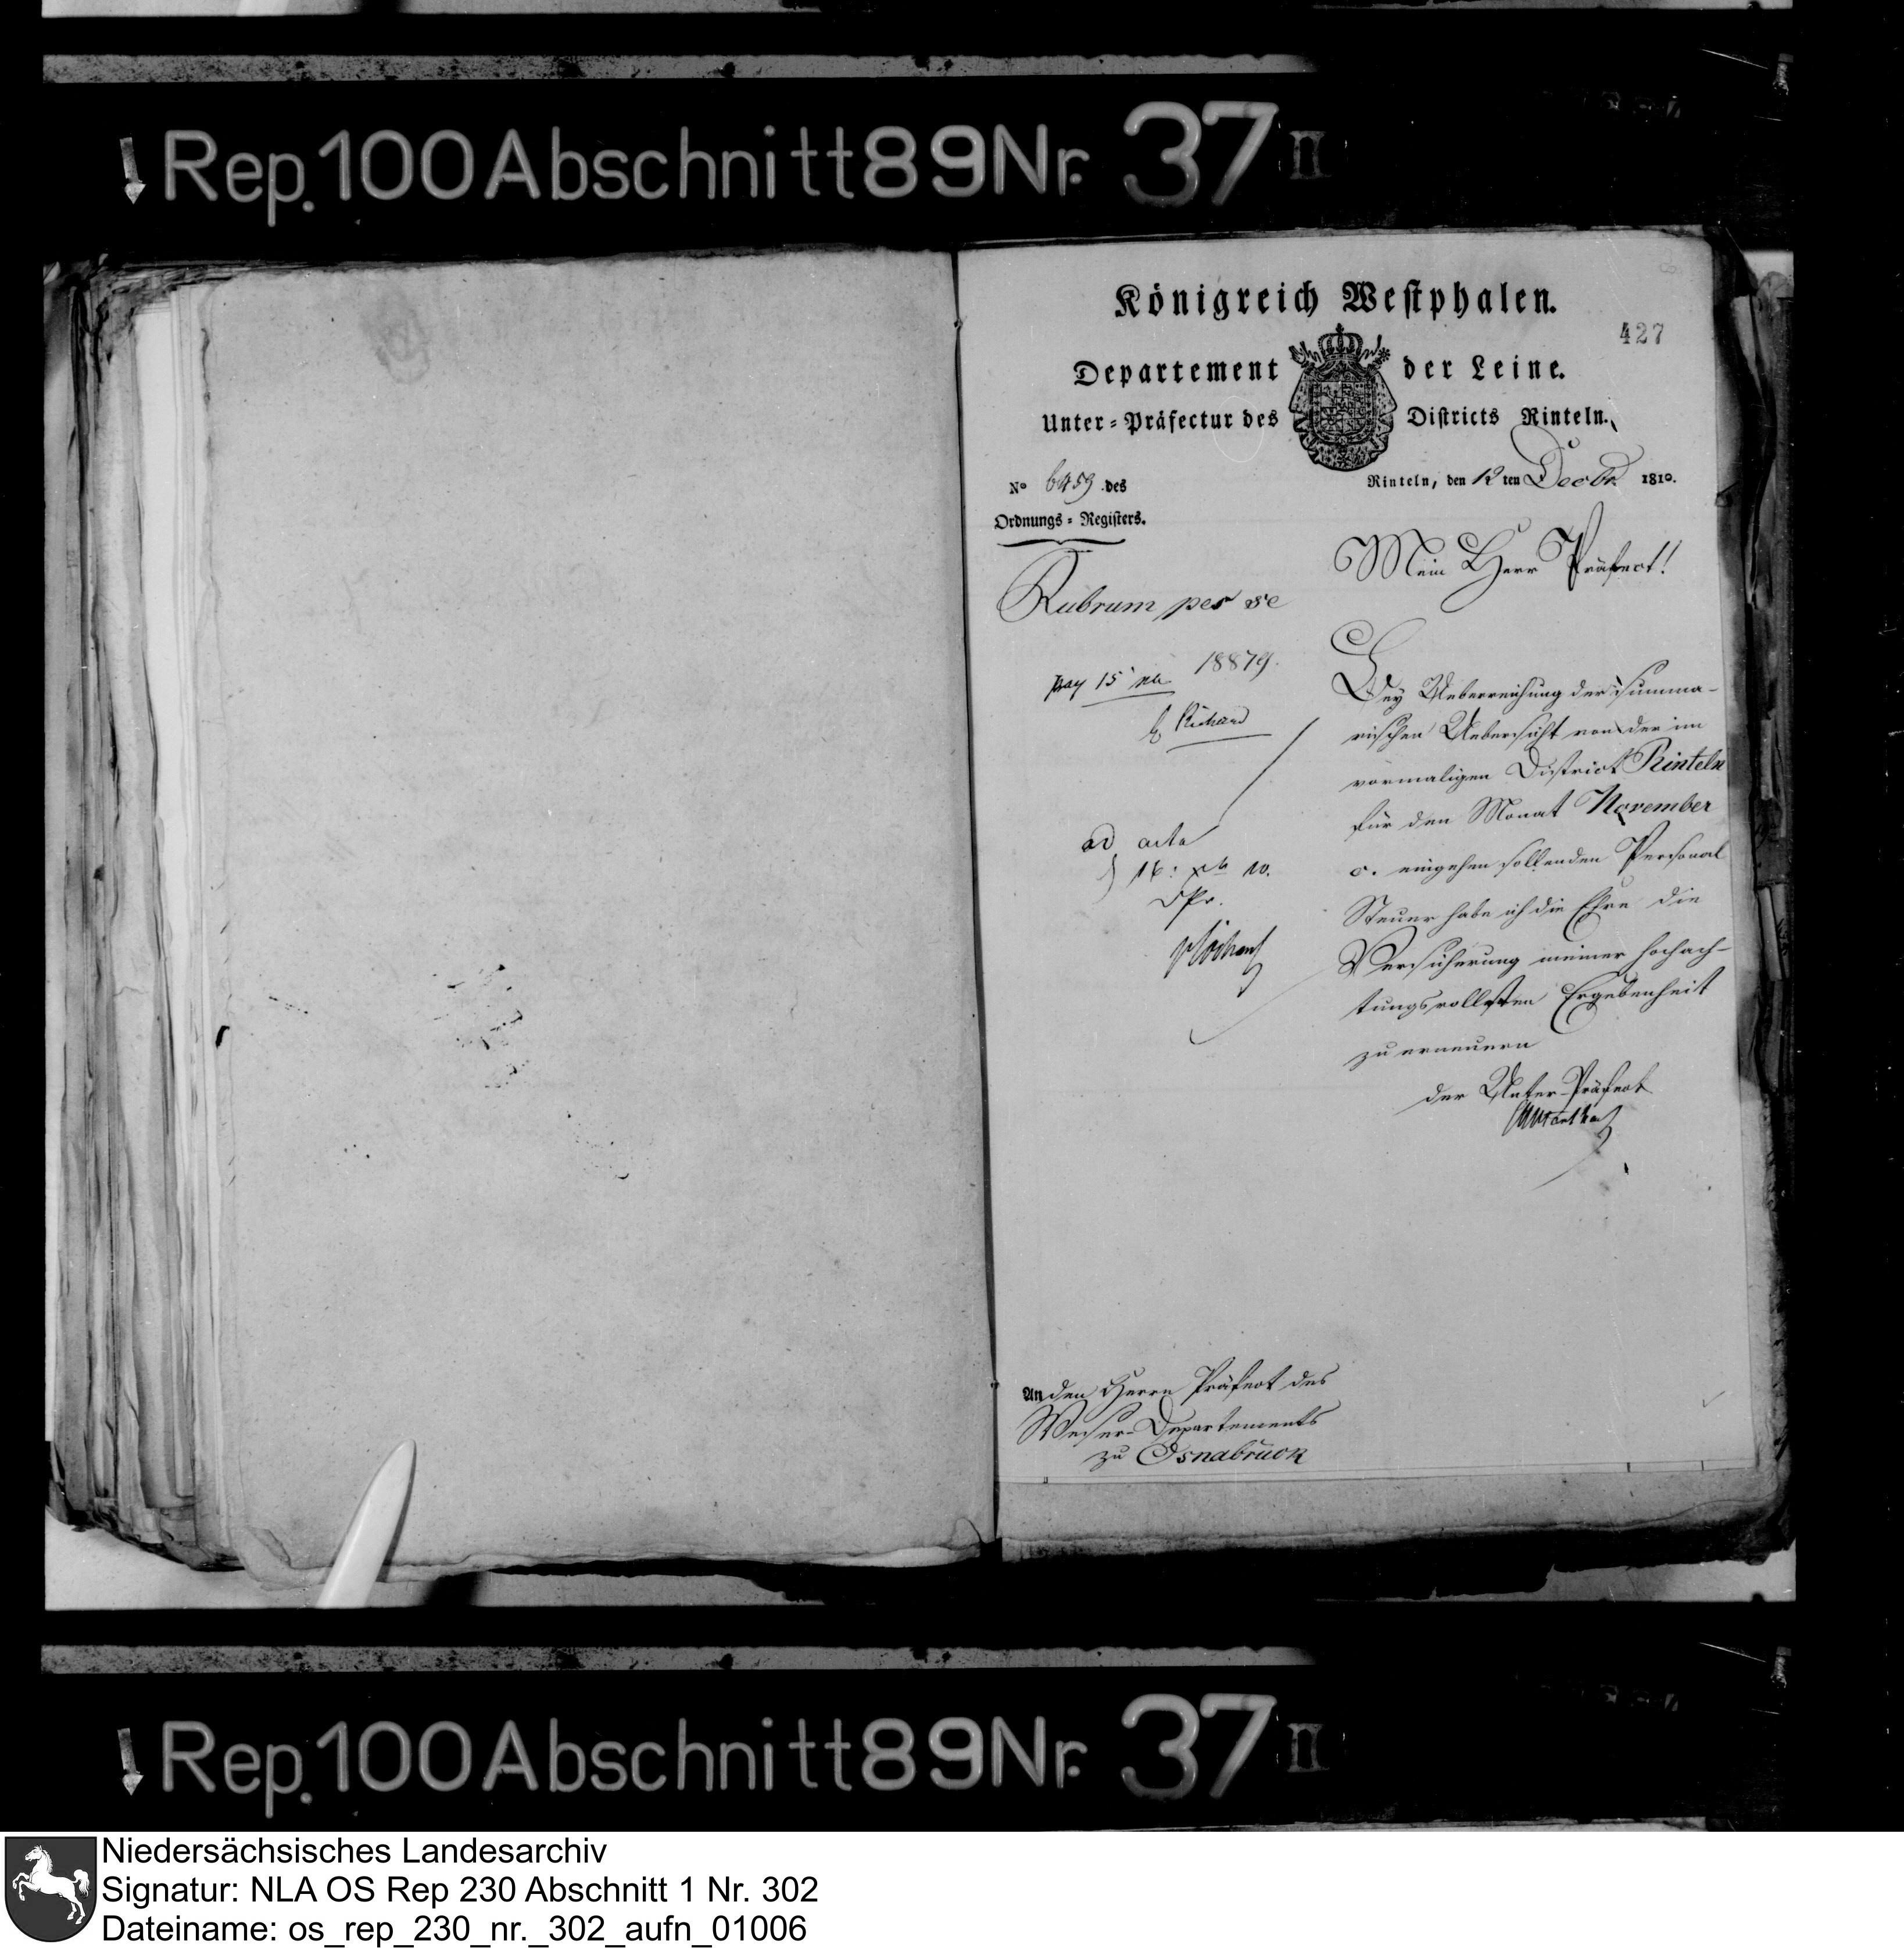 Rep. 100 Abschnitt 89 Nr. 37 II
Königreich Westphalen.
427
Departement der Leine.
Unter-Präfectur des Districts Rinteln.
No 6459 des
Ordnungs-Registers.
Rinteln, den 12 ten Decbr. 1810.
Mein Herr Präfect!
Rubrum per se
18879.
15
Richard
Bey Ueberreichung der summa-
rischen Uebersicht von der im
vormaligen District Rinteln
für den Monat November
c. eingehen sollenden Personal
Steuer habe ich die Ehre die
Versicherung meiner hochach-
tungsvollesten Ergebenheit
zu erneuern
der Unter-Präfect
ad acta
16. 10.
DPr.
An den Herrn Präfect des
Weser-Departements
zu Osnabrück
Rep. 100 Abschnitt 89 Nr. 37 II
Niedersächsisches Landesarchiv
Signatur: NLA OS Rep 230 Abschnitt 1 Nr. 302
Dateiname: os_rep_230_nr._302_aufn_01006